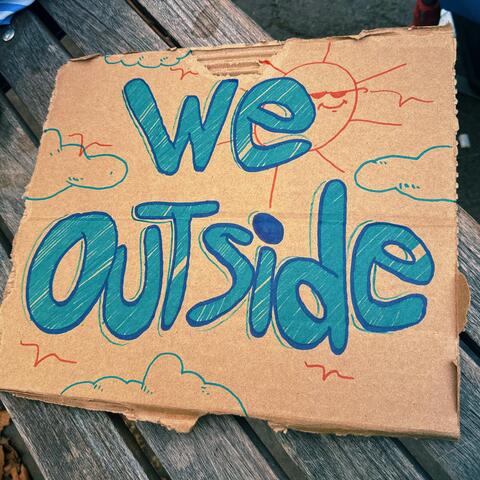 We
OUTSide